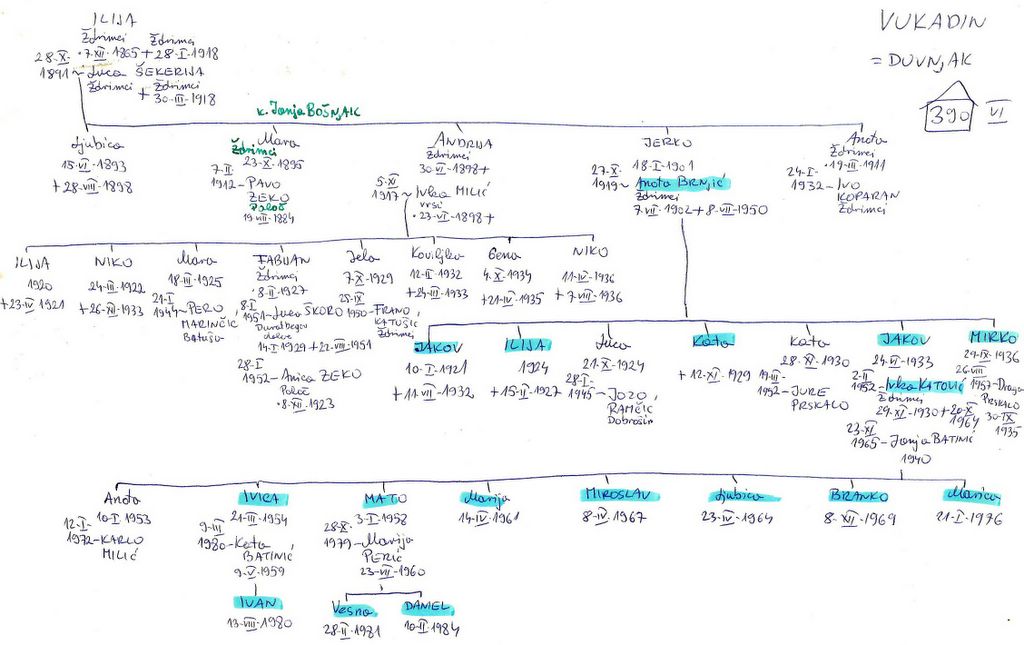 VUKADIN
= DUVNJAK
390 VI
ILIJA
Ždrimci Ždrimci
28·X· ·7·XII·1865 + 28·I·1918
1891 ~ Luca ŠEKERIJA
Ždrimci Ždrimci
+ 30·III·1918
k. Janja BOŠNJAK
Ljubica
15·VI·1893
+ 28·VIII·1898
Mara
Ždrimci
23·X·1895
7·II·
1912 - PAVO
ZEKO
Pološ
19·VIII·1884
ANDRIJA
Ždrimci
30·VI·1898 +
5·XI
1917 ~ Ivka MILIĆ
Vrsi
·23·VI·1898 +
JERKO
18·I·1901
27·X·
1919 ~ Aneta BRNJIĆ
Ždrimci
7·VII·1902 + 8·VII·1950
Aneta
Ždrimci
·19·III·1911
24·I·
1932 - IVO
KOPARAN
Ždrimci
ILIJA
1920
+ 23·IV·1921
NIKO
24·III·1922
+ 26·XII·1933
Mara
18·III·1925
21·I
1944 ~ PERO
MARINČIĆ
Batuša
FABIJAN
Ždrimci
·8·II·1927
8·I
1951 ~ Luca ŠKORO
14·I·1929 + 22·VIII·1951
28·I
1952 - Anica ZEKO
Poloč
·8·XII·1923
Jela
7·X·1929
25·IX
1950 - FRANO
KATUŠIĆ
Ždrimci
Koviljka
12·II·1932
+ 24·III·1933
Gena
4·X·1934
+ 21·IV·1935
NIKO
11·IV·1936
+ 7·VIII·1936
JAKOV
10·I·1921
+ 11·VII·1932
ILIJA
1924
+ 15·II·1927
Luca
21·X·1924
28·I·
1945 - JOZO
RAMČIĆ
Dobrošin
Kata
+ 12·XI·1929
Kata
28·XI·1930
19·III
1952 - JURE
PRSKALO
JAKOV
24·VI·1933
2·II
1952 - Ivka KATOVIĆ
Ždrimci
29·XI·1930 + 20·X
1964
23·XI
1965 - Janja BATINIĆ
1940
MIRKO
29·IX·1936
26·VIII
1957 - Draga
PRSKALO
30·IX
1935
Aneta
10·I·1953
12·I-
1972 - KARLO
MILIĆ
IVICA
21·III·1954
9·III
1980 - Kata
BATINIĆ
9·V·1959
MATO
3·I·1958
28·X·
1979 - Marija
PERIĆ
23·VII·1960
Marija
14·IV·1961
MIROSLAV
8·IV·1967
Ljubica
23·IV·1964
BRANKO
8·XII·1969
Marica
21·I·1976
IVAN
13·VIII·1980
Vesna
28·II·1981
DANIEL
10·II·1984